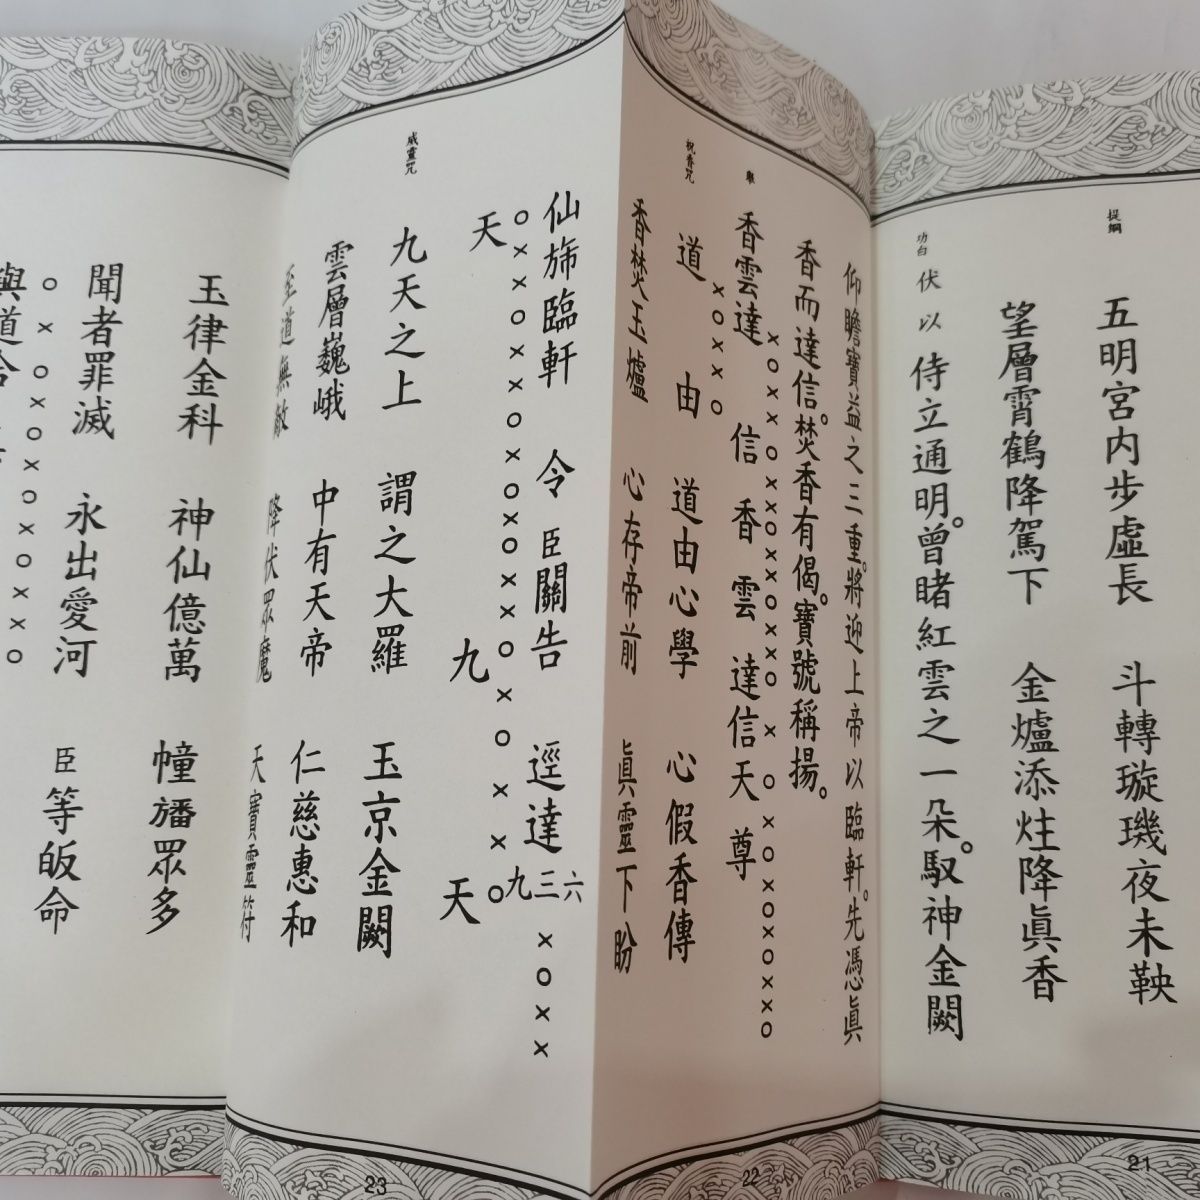 提綱
五明宮内步虛長 斗轉璇璣夜未鞅
望層霄鶴降駕下 金爐添炷降眞香
功白 伏以 侍立通明。曾睹紅雲之一朵。馭神金闕
仰瞻寶益之三重。將迎上帝以臨軒。先憑眞
香而達信。焚香有偈。寶號稱揚。
xoxxoxxoxoxxoxoxxoxoxoxoxoxxo
舉
香雲達 信香雲 達信天尊
xoxxo
祝香咒
道 由 道由心學 心假香傳
香焚玉爐 心存帝前 眞靈下盼
仙旆臨軒 令臣關告 逕達九三六
天 九 天
威靈咒
九天之上 謂之大羅 玉京金闕
雲層巍峨 中有天帝 仁慈惠和
至道無敵 降伏眾魔 天寶靈符
玉律金科 神仙億萬 幢旛眾多
聞者罪滅 永出愛河 臣等皈命
與道合
21
22
23